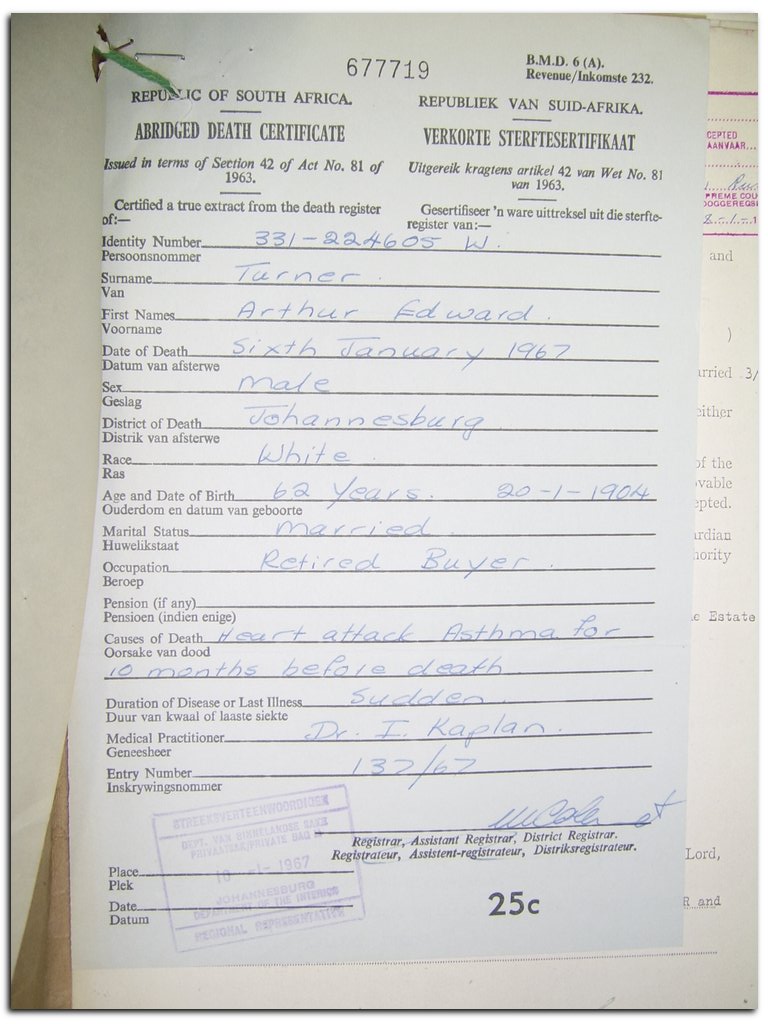 677719
B.M.D. 6 (A).
Revenue/Inkomste 232.
REPUBLIC OF SOUTH AFRICA.
ABRIDGED DEATH CERTIFICATE
Issued in terms of Section 42 of Act No. 81 of
1963.
Certified a true extract from the death register
of:—
REPUBLIEK VAN SUID-AFRIKA.
VERKORTE STERFTESERTIFIKAAT
Uitgereik kragtens artikel 42 van Wet No. 81
van 1963.
Gesertifiseer 'n ware uittreksel uit die sterfte-
register van:—
Identity Number 331-224605 W.
Persoonsnommer
Surname Turner.
Van
First Names Arthur Edward.
Voorname
Date of Death Sixth January 1967
Datum van afsterwe
Sex male
Geslag
District of Death Johannesburg
Distrik van afsterwe
Race White.
Ras
Age and Date of Birth 62 Years. 20-1-1904
Ouderdom en datum van geboorte
Marital Status married
Huwelikstaat
Occupation Retired Buyer.
Beroep
Pension (if any)
Pensioen (indien enige)
Causes of Death Heart attack Asthma for
Oorsake van dood
10 months before death
Duration of Disease or Last Illness Sudden.
Duur van kwaal of laaste siekte
Medical Practitioner Dr. I. Kaplan.
Geneesheer
Entry Number 137/67
Inskrywingsnommer
Registrar, Assistant Registrar, District Registrar.
Registrateur, Assistent-registrateur, Distriksregistrateur.
STREEKSVERTEENWOORDIGER
DEPT. VAN BINNELANDSE SAKE
PRIVAATSAK/PRIVATE BAG
10 -1- 1967
JOHANNESBURG
DEPARTMENT OF THE INTERIOR
REGIONAL REPRESENTATIVE
Place
Plek
Date
Datum
25c
CEPTED
AANVAAR...
PREME COU
OOGGEREGS
8.-1.-1
and
)
rried 3/
either
of the
vable
epted.
rdian
hority
e Estate
Lord,
R and